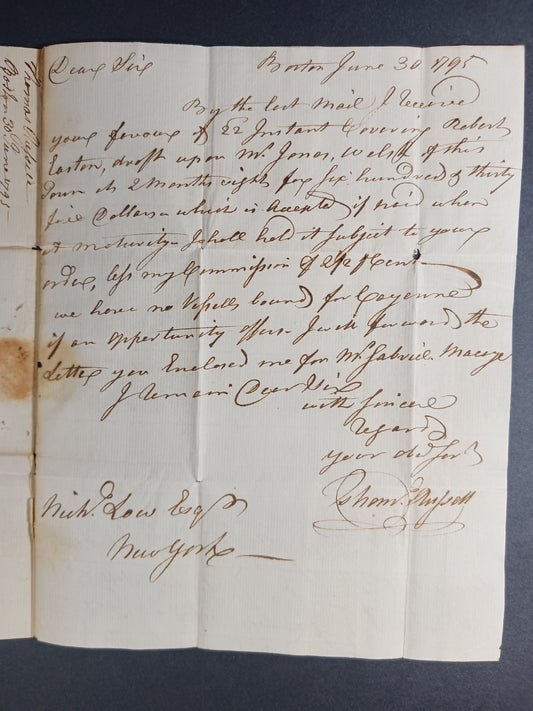 Dear Sir Boston June 30 1795
By the last Mail I receive
your favour of 22 Instant Covering Robert
Easton, draft upon Mr Jonas, Welsh of this
Town at 2 Months sight for six hundred & thirty
five Dollars which is Accepted, if paid when
at maturity I shall hold it subject to your
order, less my Commission of 2 1/2 ⅌ Cent
we have no Vessells bound for Cayenne
if an opportunity offers I will forward the
Letter you Enclosed me for Mr Gabriel
I remain Dear Sir
with sincere
regard
your obd Servt
Thoms Russell
Nichs Low Esqr
New York
Thomas Russell
Boston 30 June 1795